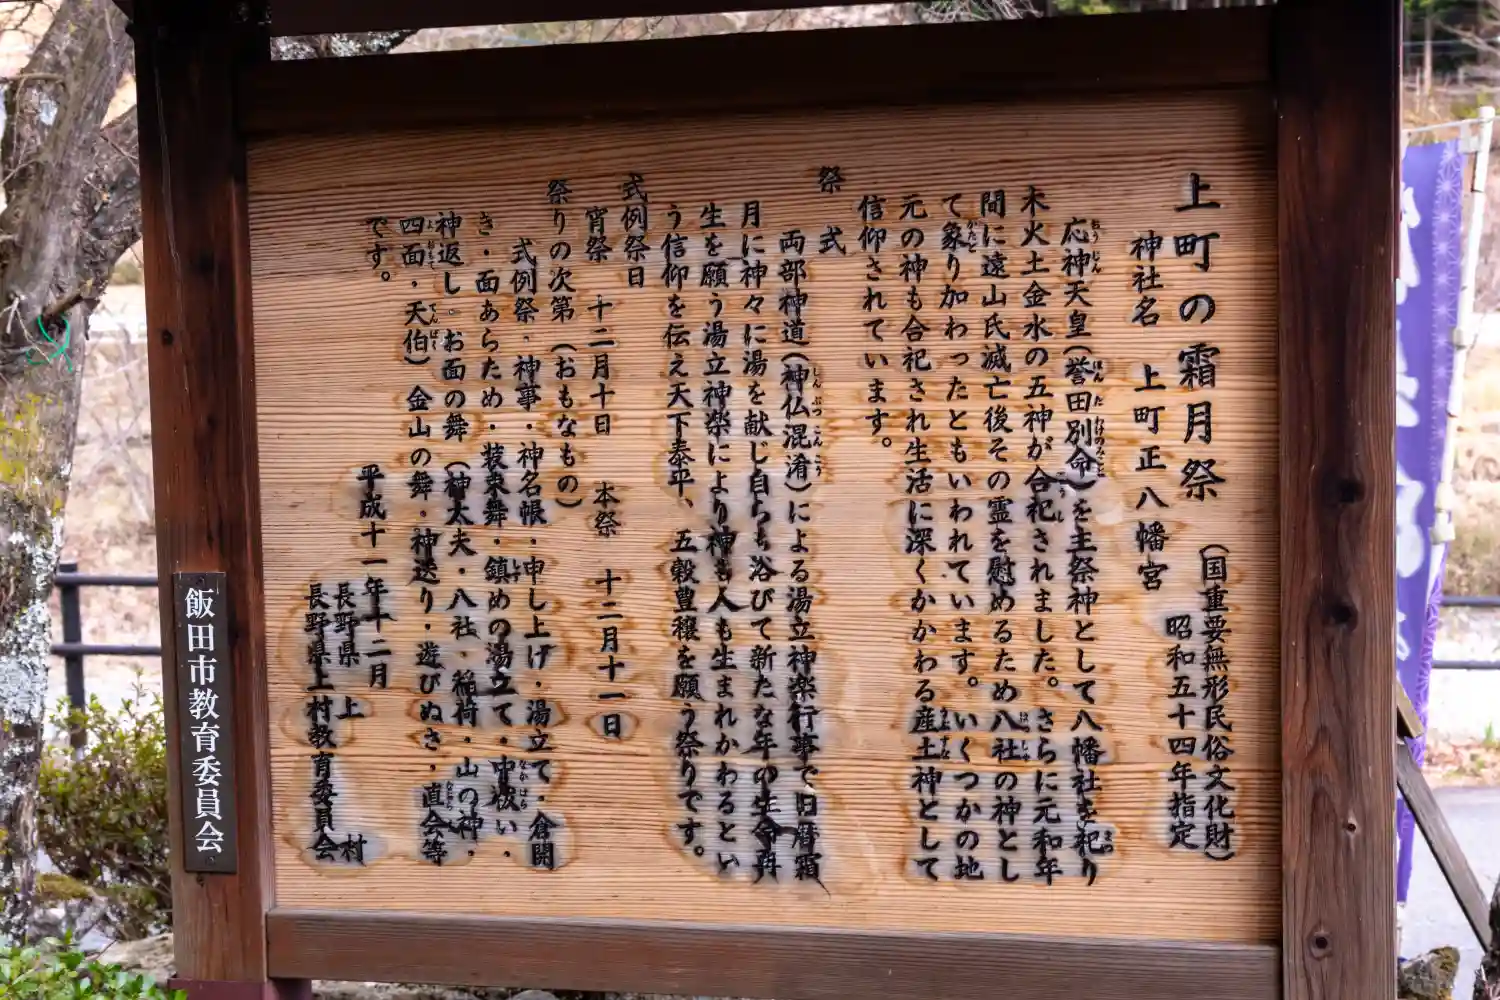 上町の霜月祭
(国重要無形民俗文化財)
昭和五十四年指定
神社名 上町正八幡宮
応神天皇(誉田別命)を主祭神として八幡社を祀り
木火土金水の五神が合祀されました。さらに元和年
間に遠山氏滅亡後その霊を慰めるため八社の神とし
て象り加わったともいわれています。いくつかの地
元の神も合祀され生活に深くかかわる産土神として
信仰されています。
祭 式
両部神道(神仏混淆)による湯立神楽行事で旧暦霜
月に神々に湯を献じ自らも浴びて新たな年の生命再
生を願う湯立神楽により神も人も生まれかわるとい
う信仰を伝え天下泰平、五穀豊穣を願う祭りです。
式例祭日
宵祭 十二月十日 本祭 十二月十一日
祭りの次第(おもなもの)
式例祭・神事・神名帳・申し上げ・湯立て・倉開
き・面あらため・装束舞・鎮めの湯立て・中祓い・
神返し・お面の舞(神太夫・八社・稲荷・山の神・
四面・天伯)金山の舞・神送り・遊びぬさ・直会等
です。
平成十一年十二月
長野県 上 村
長野県上村教育委員会
飯田市教育委員会